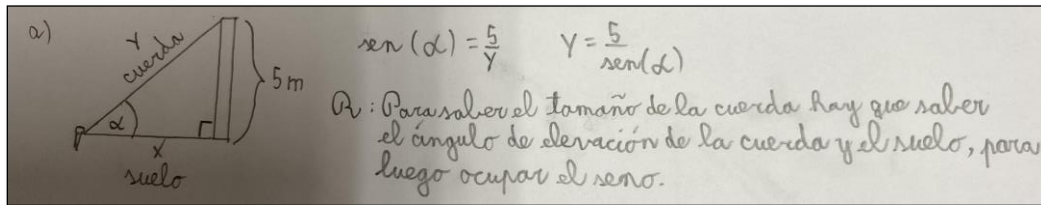 a)
Y
cuerda
5 m
α
x
suelo
sen (α) = 5/Y
Y = 5/sen(α)
R: Para saber el tamaño de la cuerda hay que saber
el ángulo de elevación de la cuerda y el suelo, para
luego ocupar el seno.